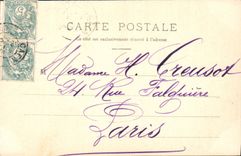 CARTE POSTALE
Ce côté est exclusivement réservé à l'adresse
Madame H. Creusot
24 Rue Falguière
Paris